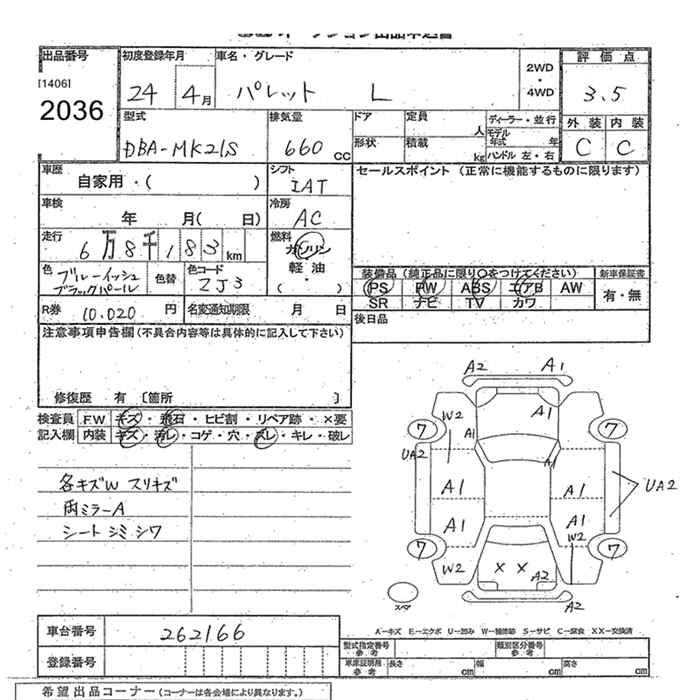 出品番号 初度登録年月 車名・グレード 2WD・4WD 評価点
[1406]
2036
24 4月 パレット L 3.5
型式 排気量 ドア 定員 人 ディーラー・並行 外装 内装
モデル年式 年
DBA-MK21S 660cc 形状 積載 kg ハンドル 左・右 C C
車歴 自家用・( ) シフト IAT セールスポイント (正常に機能するものに限ります)
車検 年 月( 日) 冷房 AC
走行 6万8千183km 燃料 ガソリン
軽油
・( )
色 ブルーイッシュブラックパール 色替 色コード ZJ3
装備品(純正品に限り○をつけてください) 新車保証書
PS PW ABS エアB AW 有・無
SR ナビ TV カワ
R券 10.020円 名変通知期限 月 日
後日品
注意事項申告欄(不具合内容等は具体的に記入して下さい)
修復歴 有 〔箇所 〕
検査員 FW キズ・飛石・ヒビ割・リペア跡・×要
記入欄 内装 キズ・汚レ・コゲ・穴・スレ・キレ・破レ
各キズW スリキズ
両ミラーA
シート シミ シワ
A2 A1
W2 A1
7 A1 A1 7
UA2 UA2
A1 A1
A1 A1
7 W2 7
W2 × × A2
スペア A2
A―キズ E―エクボ U―凹み W―補修跡 S―サビ C―腐食 XX―交換済
車台番号 262166
型式指定番号 参考 類別区分番号 参考
登録番号
車庫証明用 参考 長さ cm 幅 cm 高さ cm
希望出品コーナー(コーナーは各会場により異なります。)